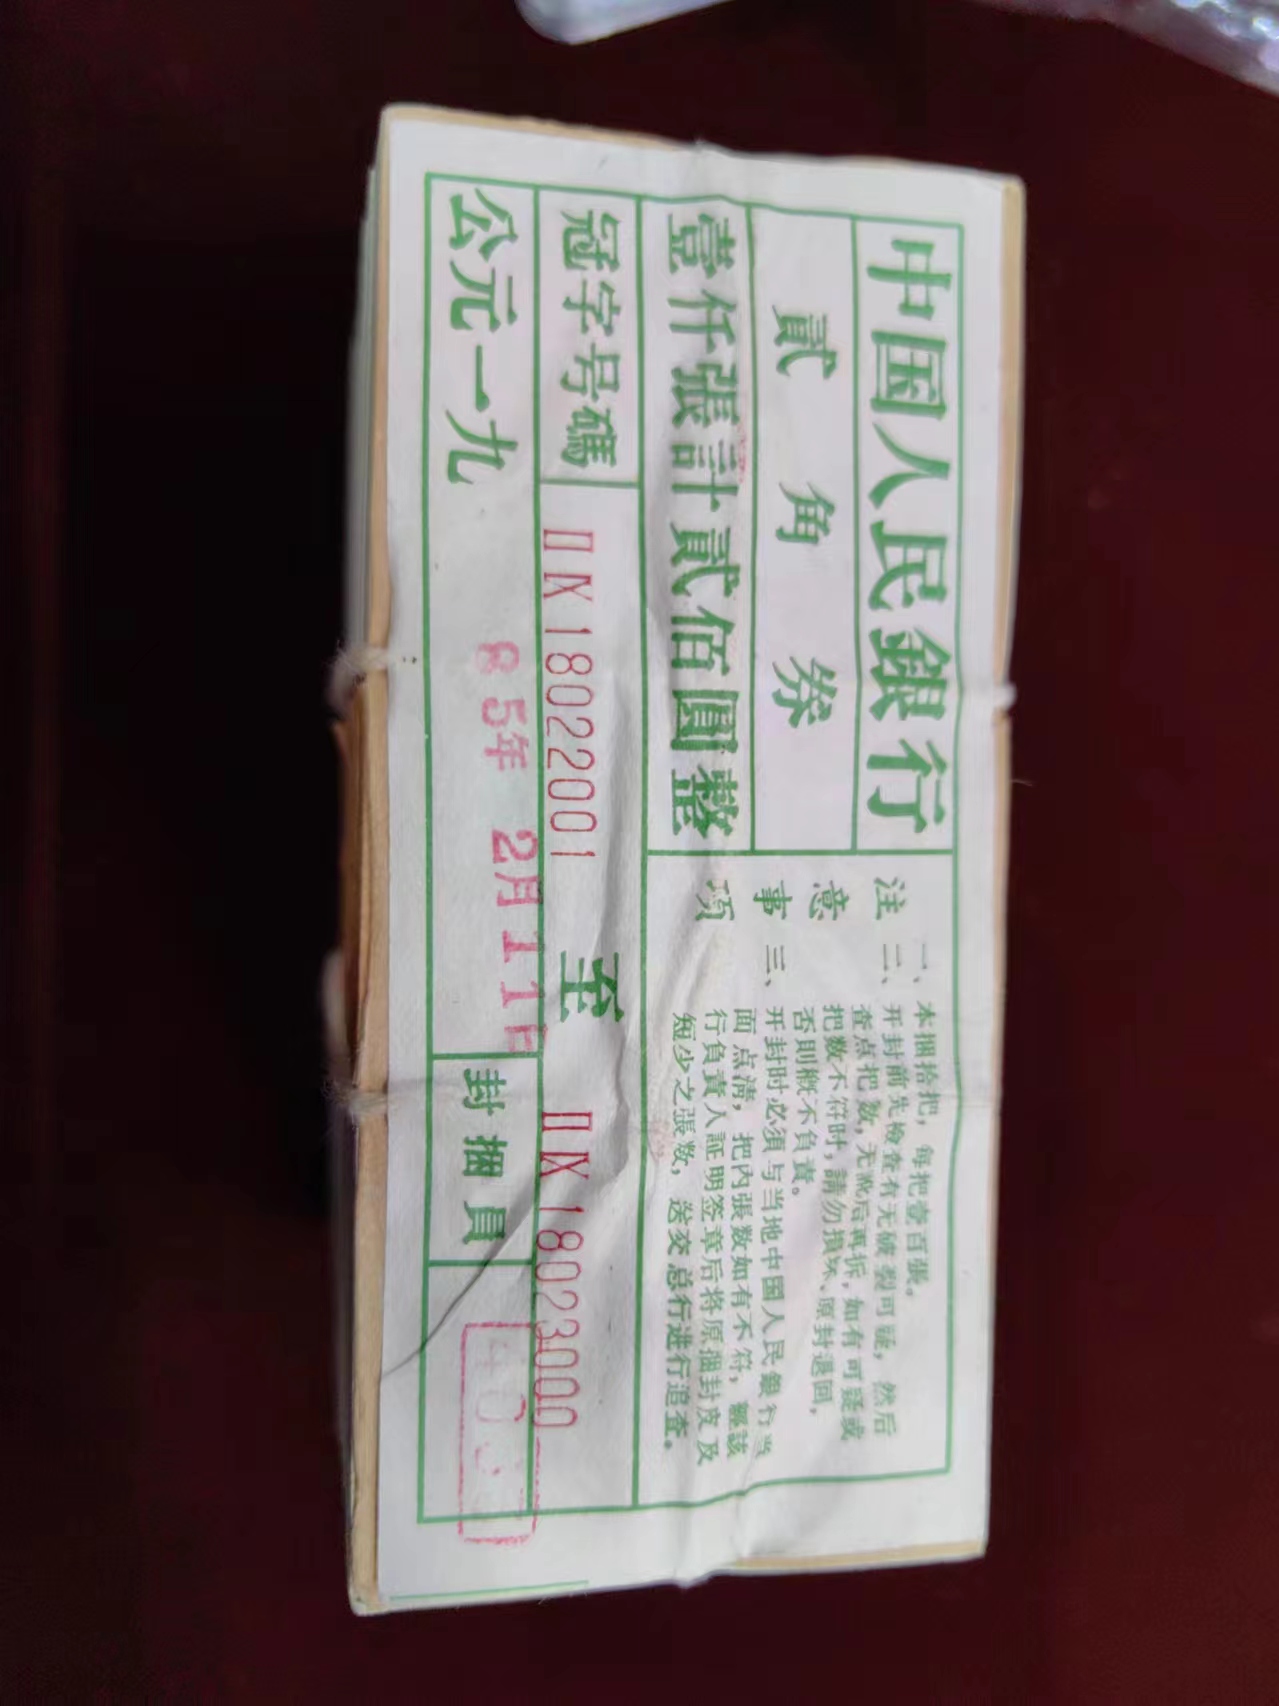 中国人民銀行
貳角券
壹仟張計貳佰圓整
注意事項
一、本捆拾把，每把壹百張。
二、开封前先檢查有无破裂可疑，然后
查点把数，无訛后再拆，如有可疑或
把数不符时，請勿損坏、原封退回，
否則概不負責。
三、开封时必須与当地中国人民銀行当
面点清，把内張数如有不符，應該
行負責人証明签章后将原捆封皮及
短少之張数，送交总行进行追查。
冠字号碼
ⅡⅨ18022001 至 ⅡⅨ18023000
公元一九
85年 2月11日
封捆員